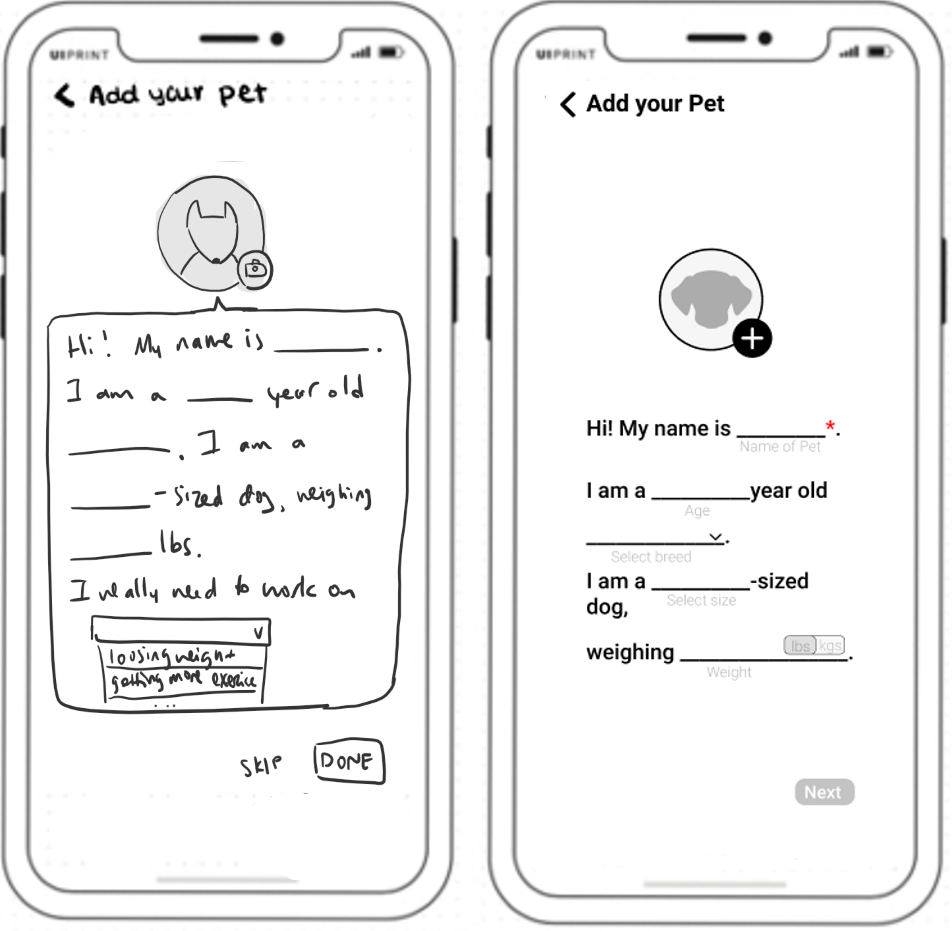 UIPRINT
< Add your pet
Hi! My name is ______.
I am a ____ year old
______. I am a
_____-sized dog, weighing
_____ lbs.
I really need to work on
loosing weight
getting more exercise
...
SKIP
DONE
UIPRINT
< Add your Pet
Hi! My name is ________*.
Name of Pet
I am a _________year old
Age
____________.
Select breed
I am a _________-sized
Select size
dog,
lbs kgs
weighing _______________.
Weight
Next